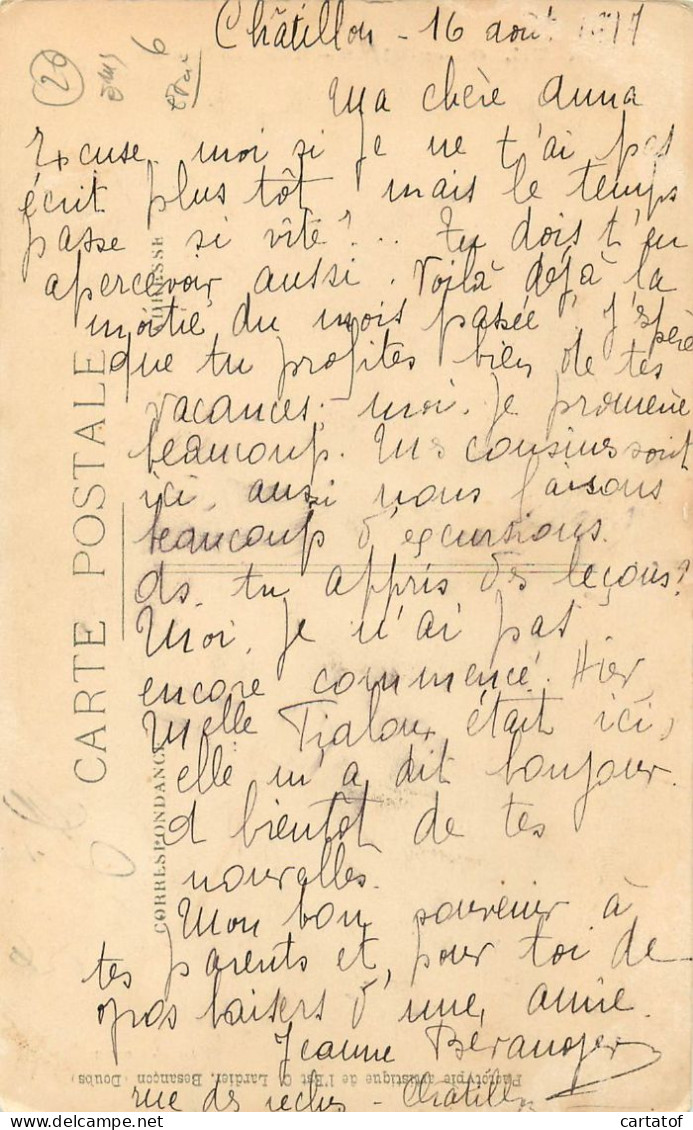 Châtillon - 16 août 1917
20
6
Ma chère Anna
Excuse-moi si je ne t'ai pas
écrit plus tôt mais le temps
passe si vite! .. Tu dois t'en
apercevoir aussi. Voilà déjà la
moitié du mois passée, j'espère
que tu profites bien de tes
vacances; moi, je promène
beaucoup. Mes cousines sont
ici, aussi nous faisons
beaucoup d'excursions.
As-tu appris des leçons?
Moi, je n'ai pas
encore commencé. Hier,
Melle Fialoux était ici,
elle m'a dit bonjour.
A bientôt de tes
nouvelles.
Mon bon souvenir à
tes parents et, pour toi de
gros baisers d'une amie.
Jeanne Béranger
rue des - Châtillon
CARTE POSTALE
CORRESPONDANCE
ADRESSE
Phototypie artistique de l'Est C. Lardier, Besançon (Doubs)
cartatof